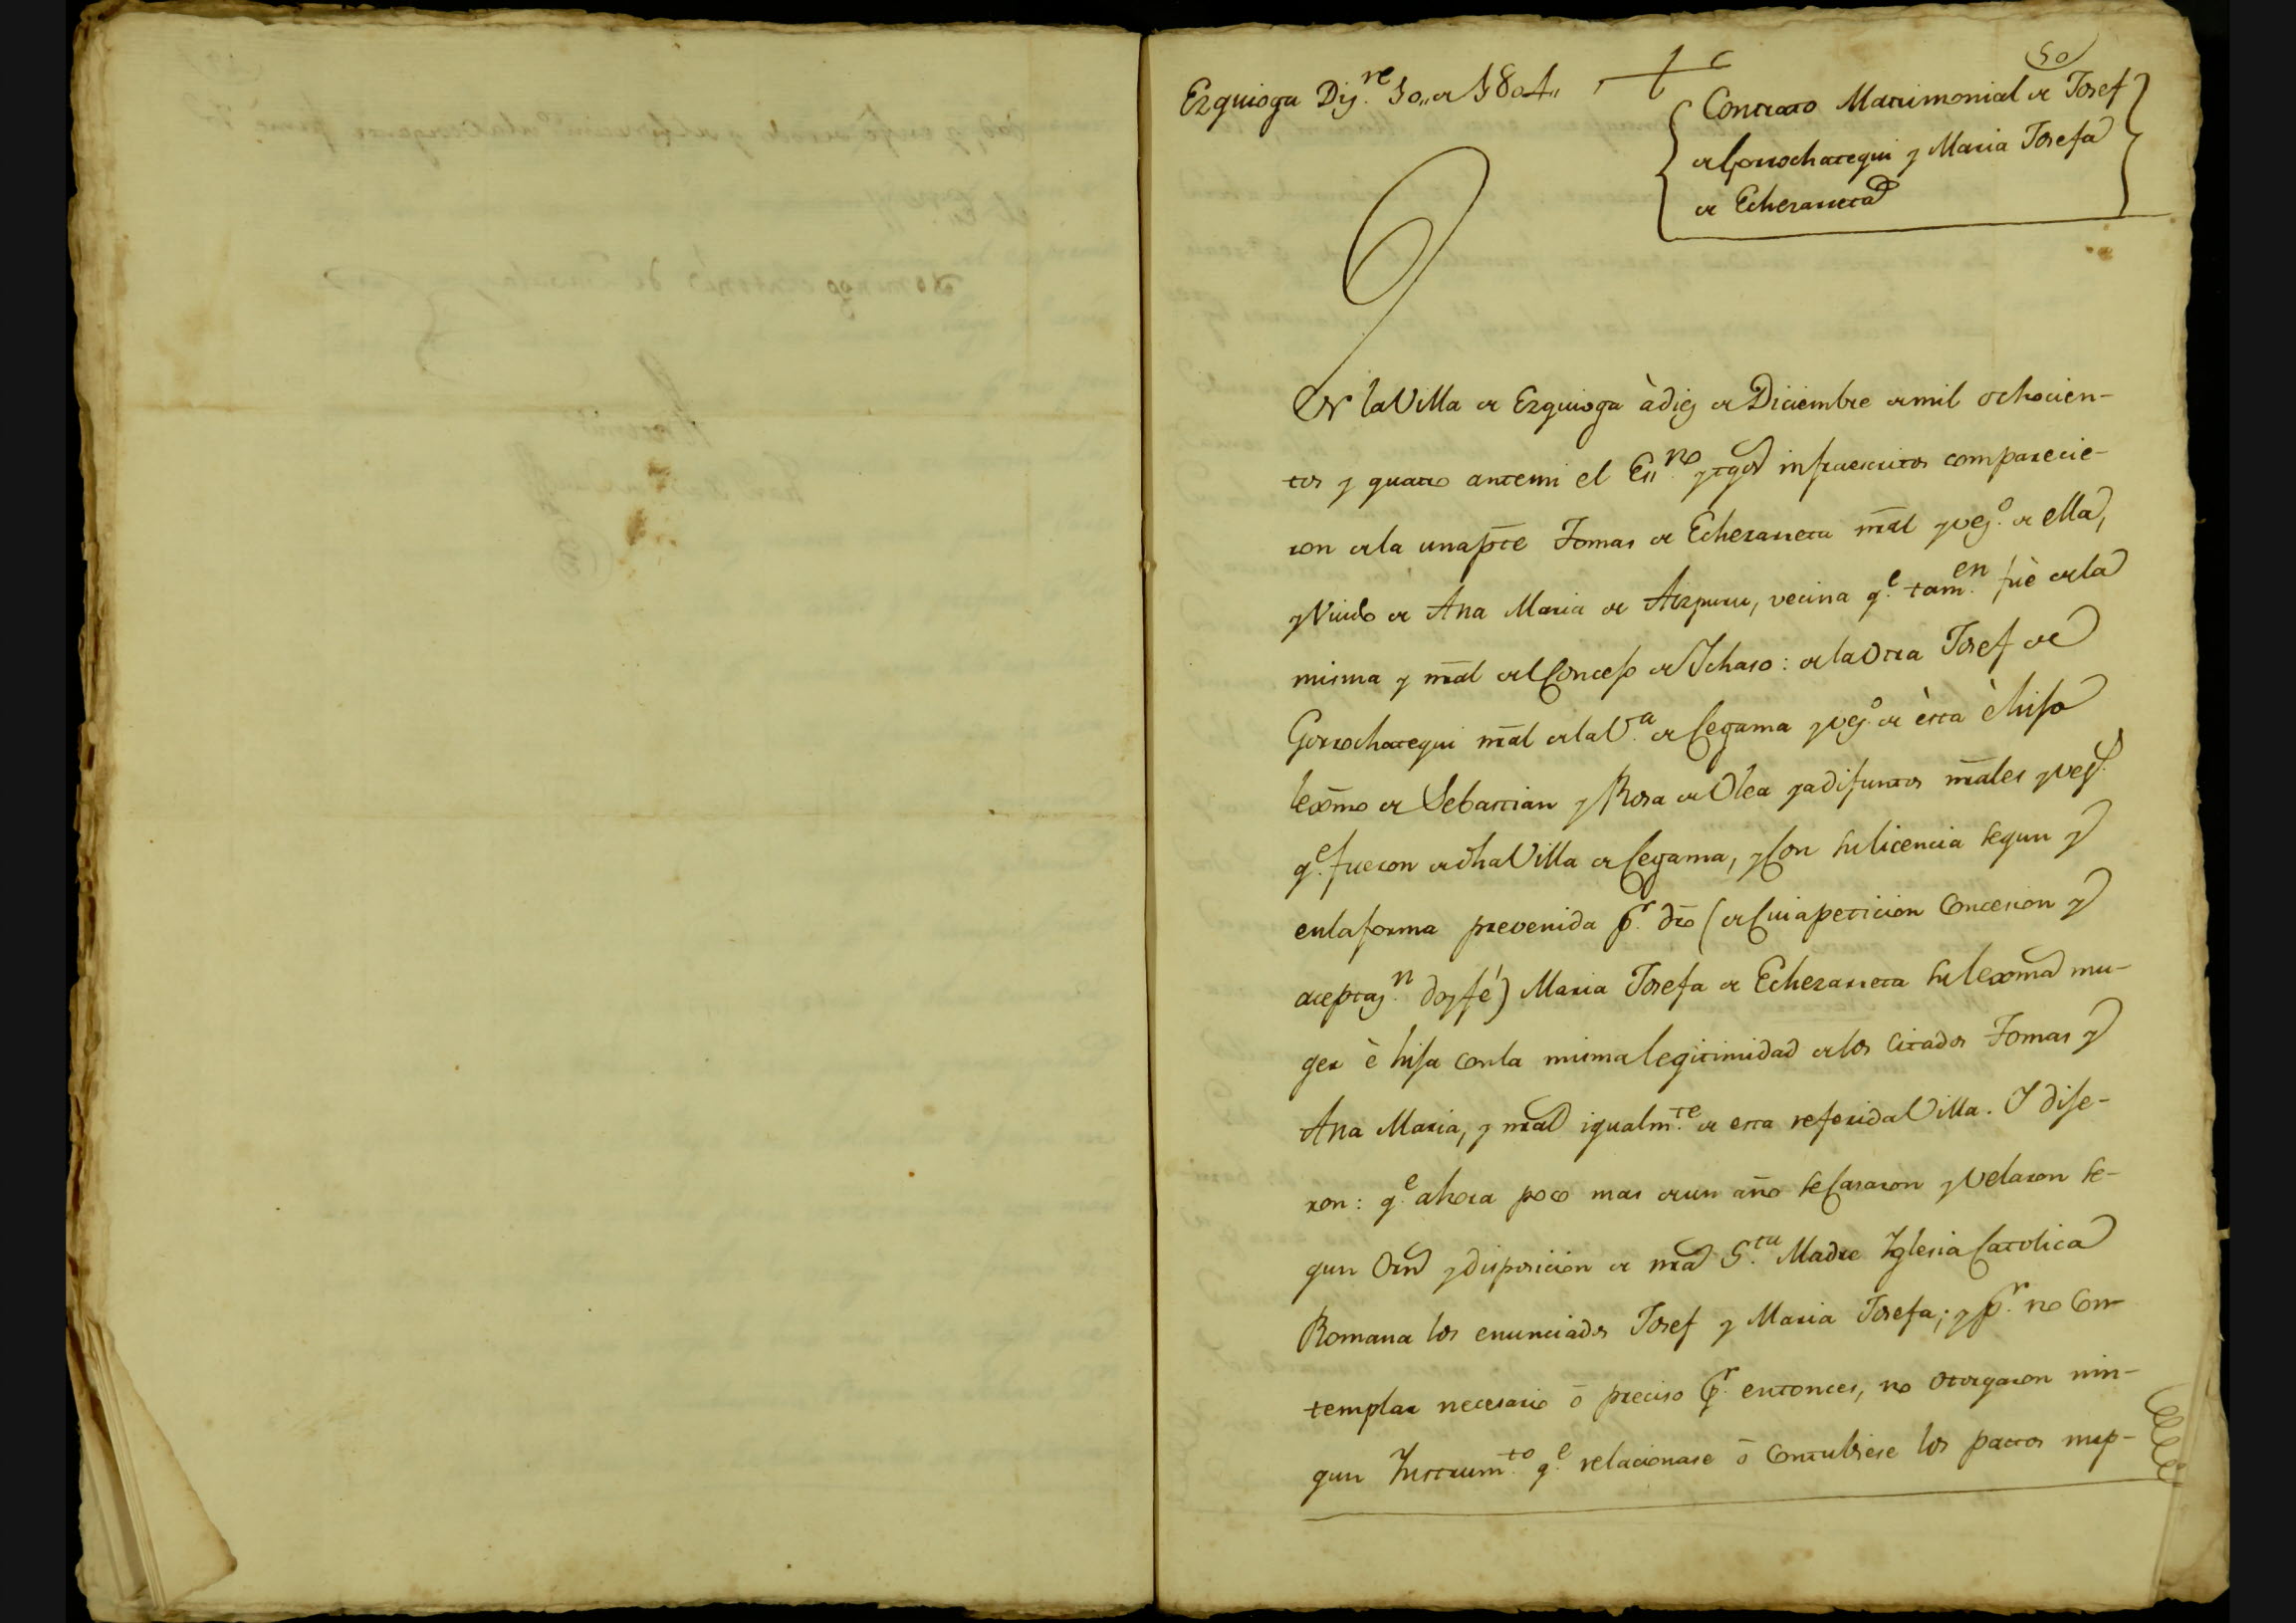 50
Ezquioga Diz.re 10,, de 1804,,
Contrato Matrimonial de Josef
de Gorrochategui y Maria Josefa
de Echezarreta
En la Villa de Ezquioga à diez de Diciembre de mil ochocien-
tos y quatro ante mi el Es.no y tgos infraescritos comparecie-
ron de la una pte Tomas de Echezarreta nral y vez.o de ella,
y Viudo de Ana Maria de Aizpuru, vecina q.e tam.en fuè de la
misma y nral del Concejo de Ichaso: de la otra Josef de
Gorrochategui nral de la V.a de Cegama y vez.o de èsta è hijo
lexmo de Sebastian y Rosa de Olea ya difuntos nrales y vez.s
q.e fueron de dha Villa de Cegama, y con su licencia segun y
en la forma prevenida p.r dro (de cuia peticion concesion y
aceptaz.n doy fé) Maria Josefa de Echezarreta su lexma mu-
ger è hija con la misma legitimidad de los citados Tomas y
Ana Maria, y nral igualm.te de esta referida Villa. Y dije-
ron: q.e ahora poco mas de un año se casaron y velaron se-
gun Orn y disposicion de nra S.ta Madre Iglesia Catolica
Romana los enunciados Josef y Maria Josefa; y p.r no con-
templar necesario ō preciso p.r entonces, no otorgaron nin-
gun Instrum.to q.e relacionase ō contubiese los pactos nup-